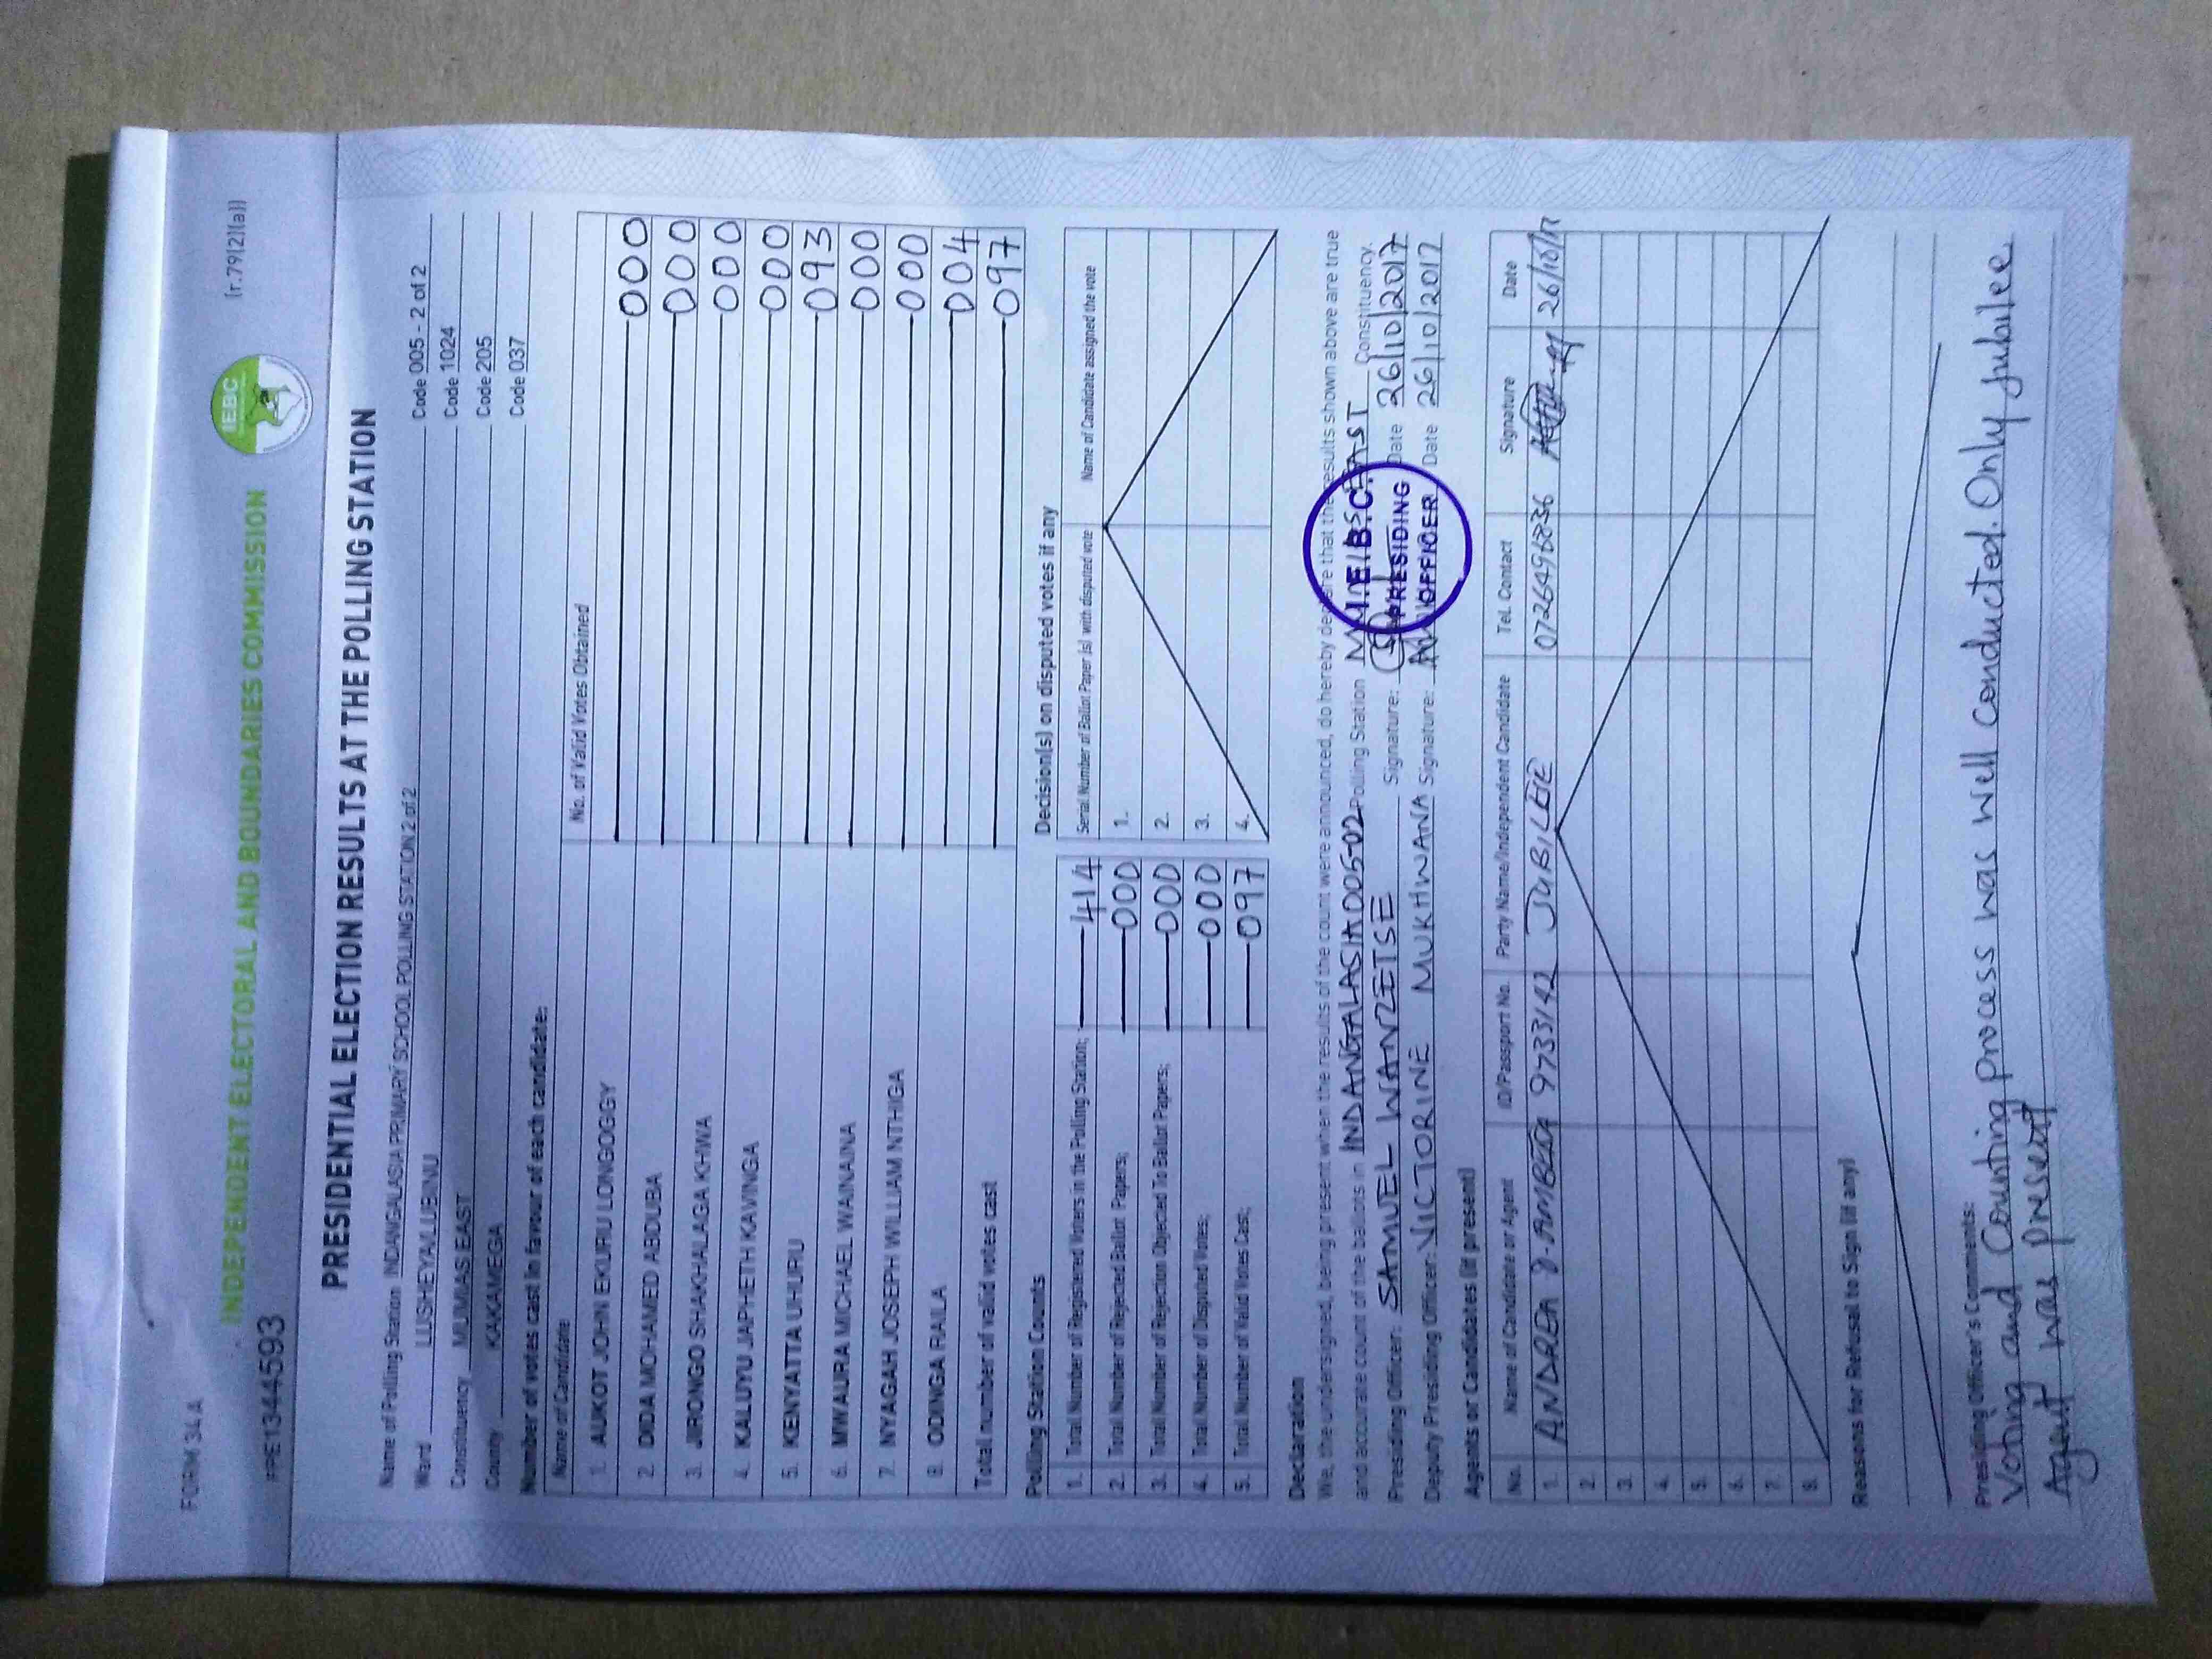 FORM 34 A
[r.79(2)(a)]
IEBC
INDEPENDENT ELECTORAL AND BOUNDARIES COMMISSION
PRESIDENTIAL ELECTION RESULTS AT THE POLLING STATION
Name of Polling Station INDANGALASIA PRIMARY SCHOOL POLLING STATION 2 of 2 Code 005 - 2 of 2
Ward LUSHEYA/LUBINU Code 1024
Constituency MUMIAS EAST Code 205
County KAKAMEGA Code 037
Number of votes cast in favour of each candidate:
Name of Candidate No. of Valid Votes Obtained
1. AUKOT JOHN EKURU LONGOGGY 000
2. DIDA MOHAMED ABDUBA 000
3. JIRONGO SHAKHALAGA KHWA 000
4. KALUYU JAPHETH KAVINGA 000
5. KENYATTA UHURU 093
6. MWAURA MICHAEL WAINAINA 000
7. NYAGAH JOSEPH WILLIAM NTHIGA 000
8. ODINGA RAILA 004
Total number of valid votes cast 097
Polling Station Counts
1. Total Number of Registered Voters in the Polling Station; 414
2. Total Number of Rejected Ballot Papers; 000
3. Total Number of Rejection Objected To Ballot Papers; 000
4. Total Number of Disputed Votes; 000
5. Total Number of Valid Votes Cast; 097
Decision(s) on disputed votes if any
Serial Number of Ballot Paper (s) with disputed vote Name of Candidate assigned the vote
1.
2.
3.
4.
Declaration
We, the undersigned, being present when the results of the count were announced, do hereby declare that the results shown above are true
and accurate count of the ballots in INDANGALASIA 005-02 Polling Station EAST Constituency.
Presiding Officer: SAMUEL WANZETSE Signature: Date 26/10/2017
Deputy Presiding Officer: VICTORINE MUKHWANA Signature: Date 26/10/2017
I.E.B.C.
PRESIDING
OFFICER
Agents or Candidates (if present)
No. Name of Candidate or Agent ID/Passport No. Party Name/Independent Candidate Tel. Contact Signature Date
1. ANDREA 9733142 JUBILEE 26/10/17
2.
3.
4.
5.
6.
7.
8.
Reasons for Refusal to Sign (if any)
Presiding Officer's Comments:
Voting and Counting process was well conducted. Only Jubilee
Agent was present